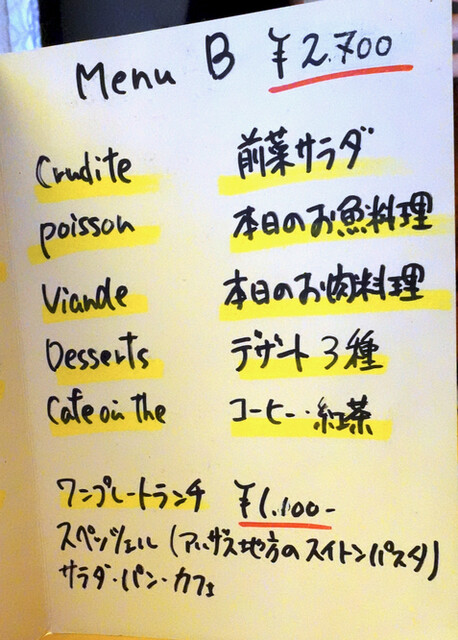 Menu B ¥2.700
Crudite 前菜サラダ
poisson 本日のお魚料理
Viande 本日のお肉料理
Desserts デザート3種
Cafe ou the コーヒー・紅茶
ワンプレートランチ ¥1.100-
スペッツェル (アルザス地方のスイトンパスタ)
サラダ・パン・カフェ